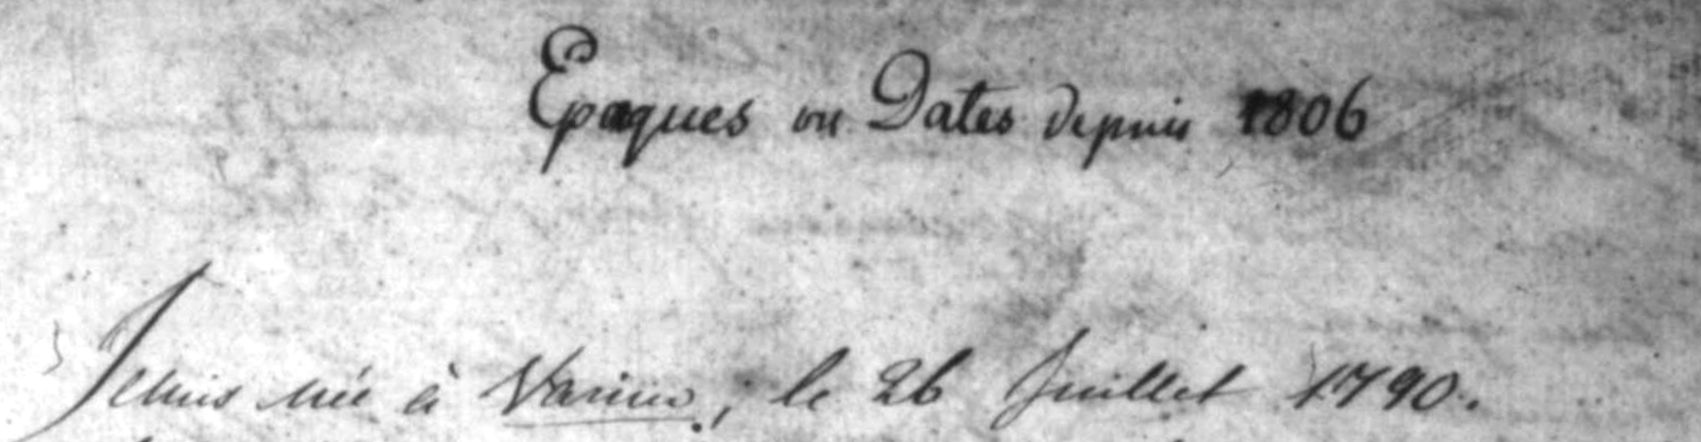 Epoques ou Dates depuis 1806
Je suis née à Varin, le 26 Juillet 1790.